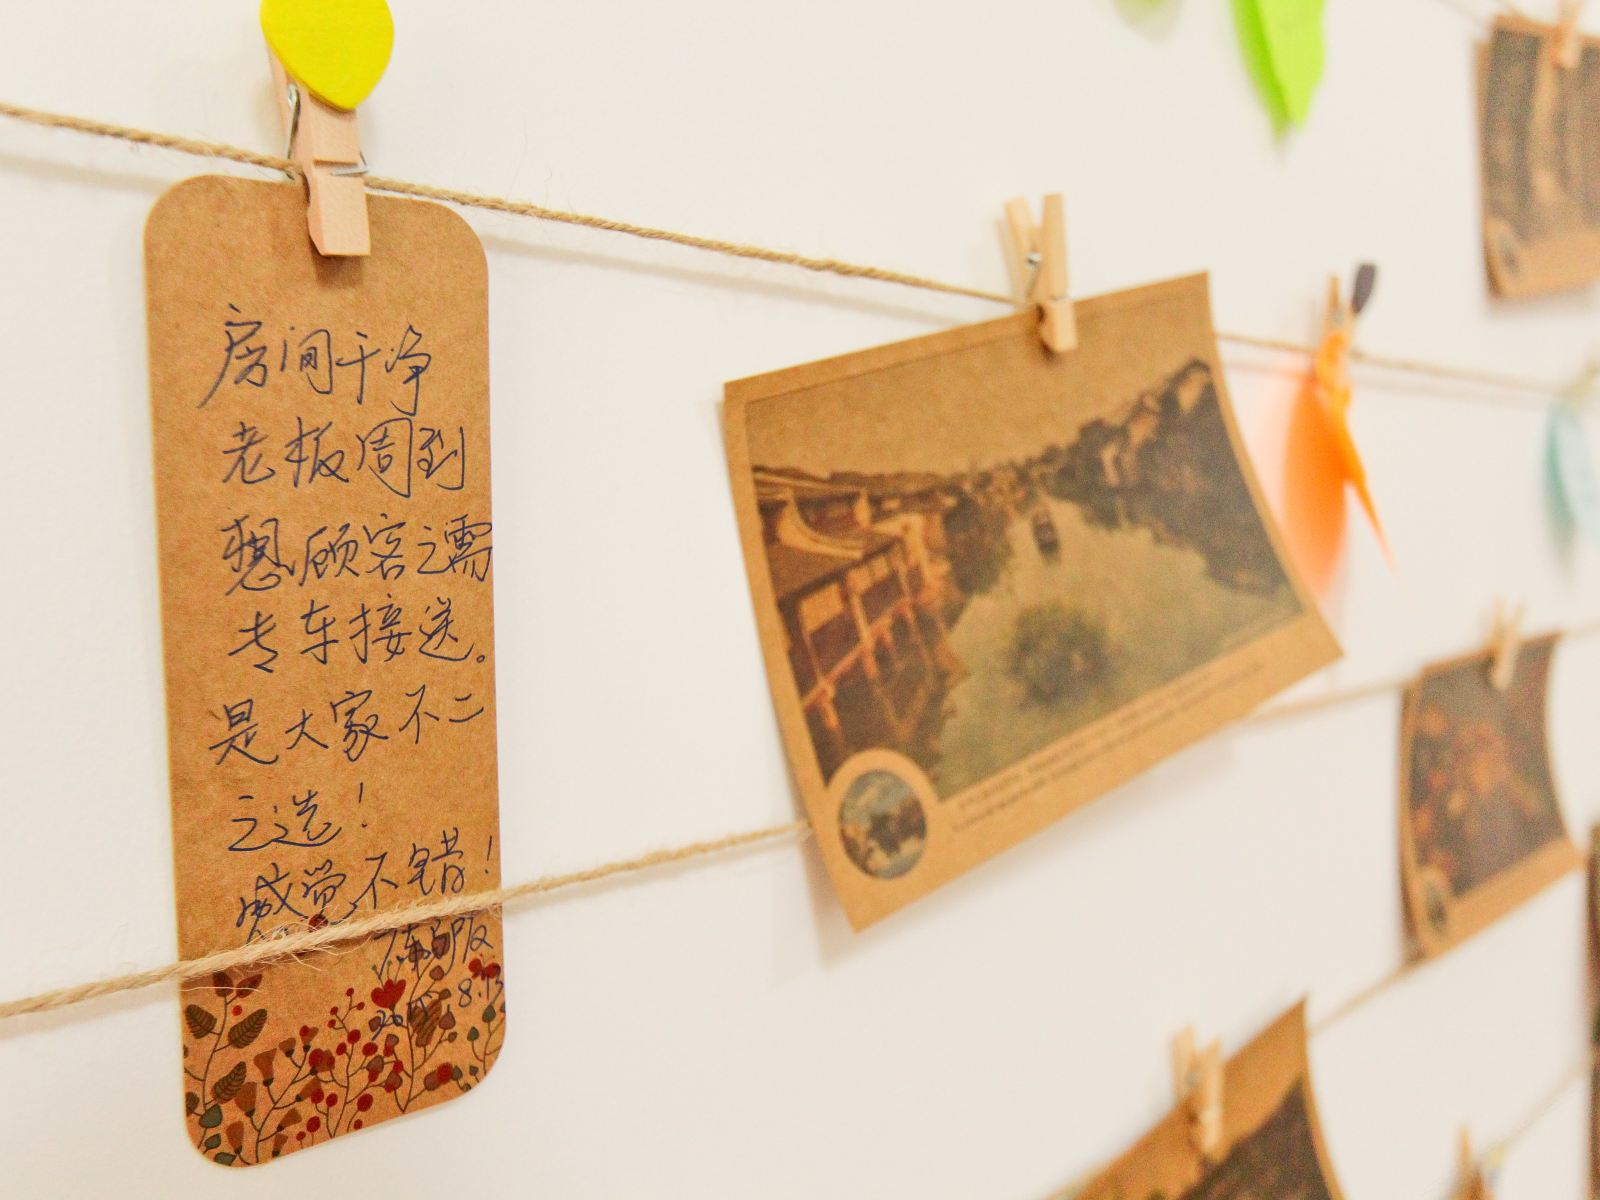 房间干净
老板周到
想顾客之需
专车接送。
是大家不二
之选！
感觉不错！
8.13